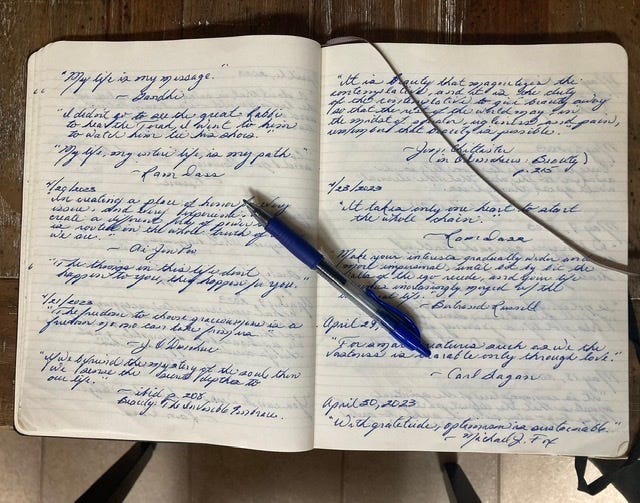 "My life is my message."
— Gandhi
"I didn't go to see the great Rabbi
to hear the Torah, I went to him
to watch him tie his shoes.
"My life, my entire life, is my path.
— Ram Dass
4/20/2023
In creating a place of honor
issue, and every
create a
is rooted in the whole
we are."
— Ai-Jen Poo
"The things in this life don't
happen to you, they happen for you."
4/21/2023
"The freedom to choose graciousness is a
freedom no one can take from us."
— J. O'Donohue
"If we befriend the mystery of the soul then
we sense the secret depths to
our life."
— ibid p. 208
Beauty: The Invisible Embrace.
"It is beauty that magnetizes the
contemplative, and it is the duty
of the contemplative to give beauty away
so that the rest of the world may in
the midst of squalor, ugliness and pain,
remember that beauty is possible.
— Joan Chittister
(in O'Donohue: Beauty)
p. 215
4/23/2023
"It takes only one heart to start
the whole chain."
— Ram Dass
Make your interests gradually wider and
more impersonal, until bit by bit the
walls of the ego recede, and your life
increasingly merged w/ the
life.
— Bertrand Russell
April 29,
"For small creatures such as we the
vastness is bearable only through love."
— Carl Sagan
April 30, 2023
"With gratitude, optimism is sustainable."
— Michael J. Fox